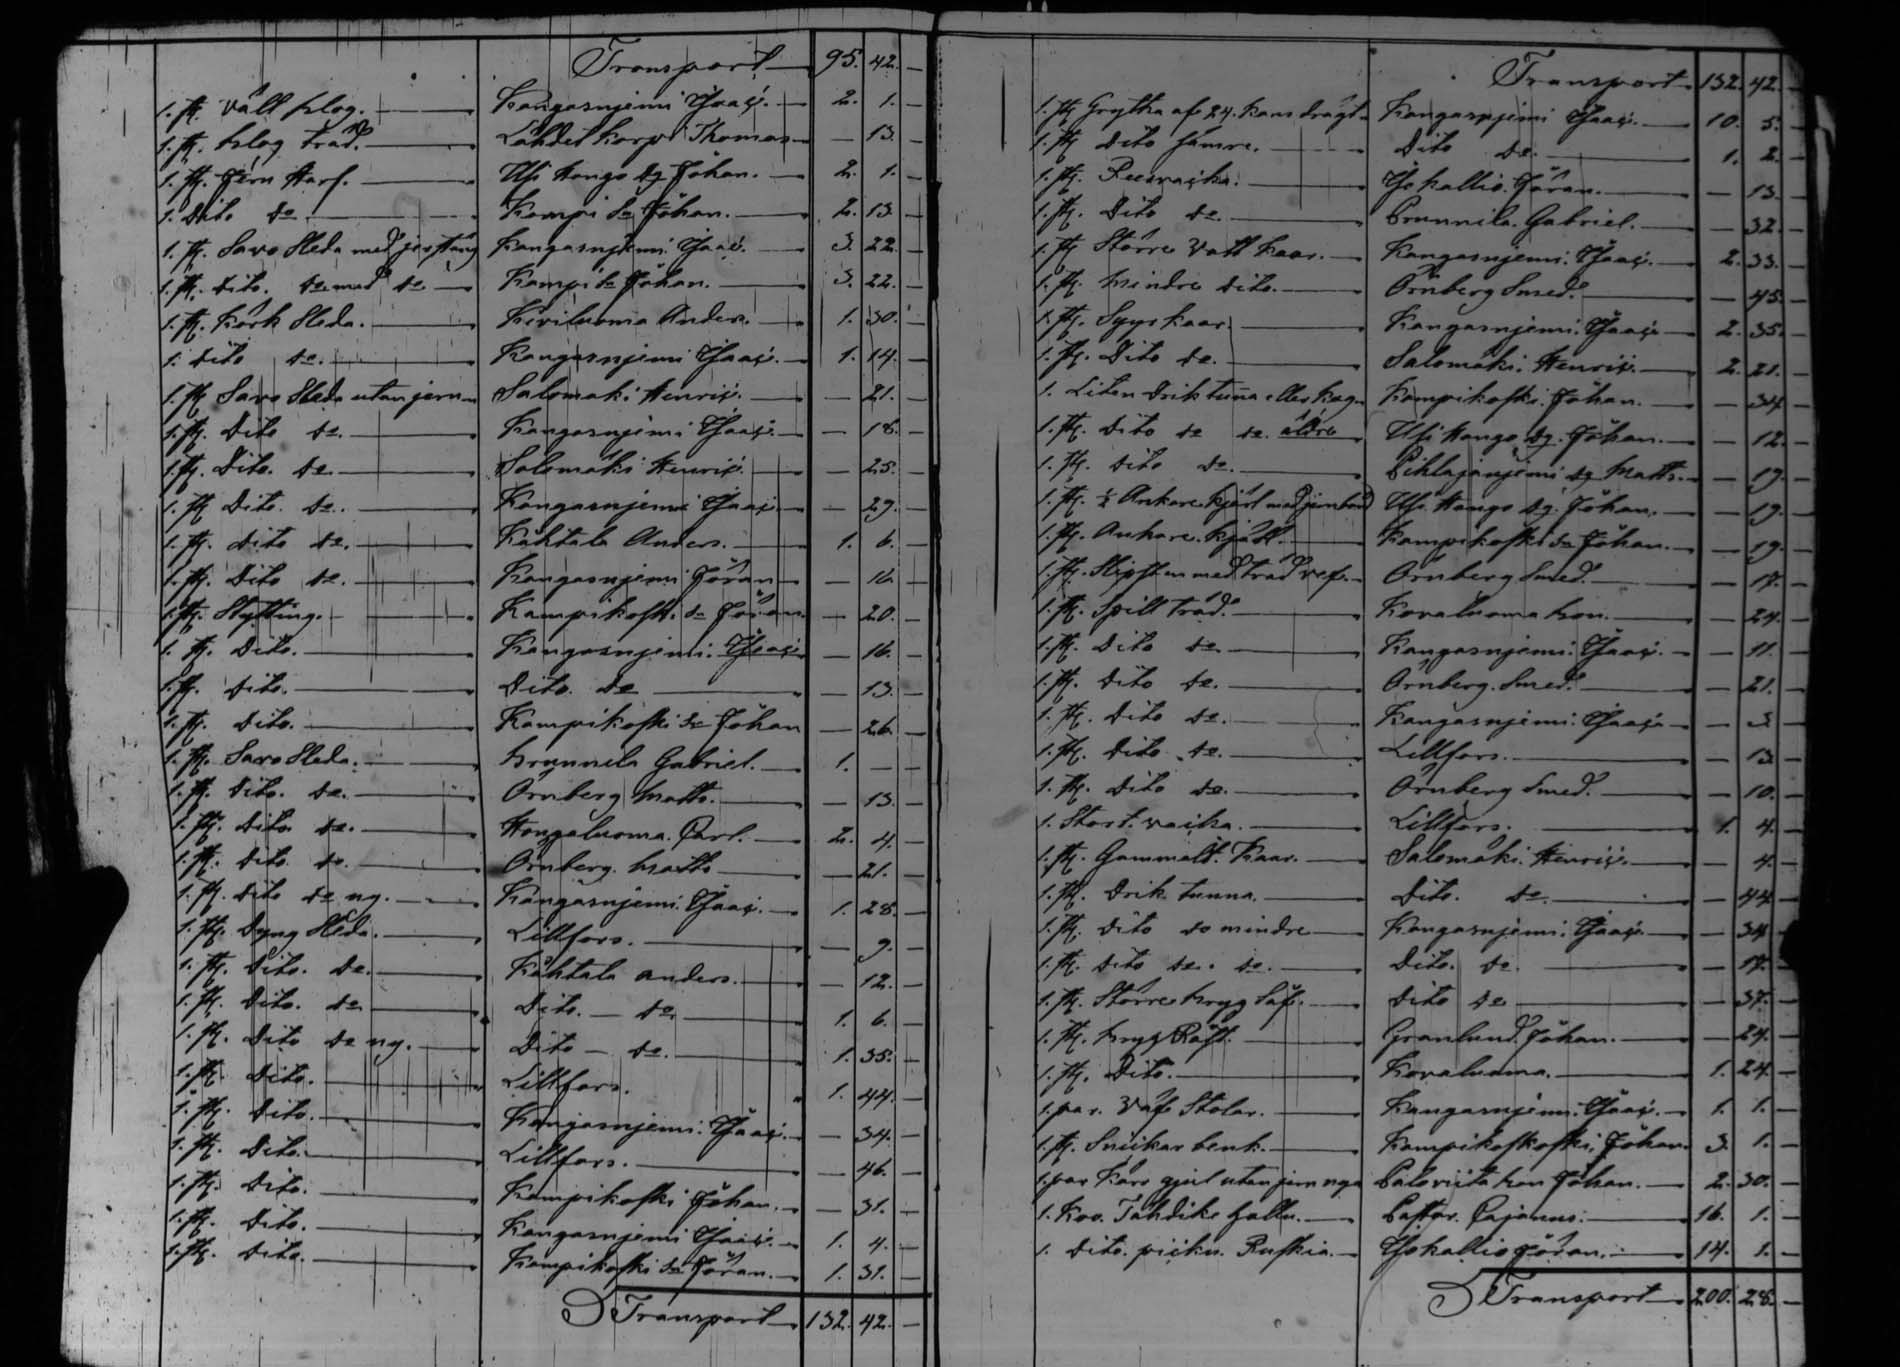 Transport 95. 42. —
1. st. Väll plog. Kangasnjemi Isaac. 2. 1. —
1. st. plog träd. Lähdetkorpi Thomas — 13. —
1. st. Jern Harf. Ylihongo dg Johan. 2. 1. —
1. Dito do Kampi do Johan. 2. 13. —
1. st. Savo Sleda med jern stäng Kangasnjemi Isaac. 3. 22. —
1. st. Dito. do med do Kampi do Johan. 3. 22. —
1. st. Körk Sleda. Kiviluoma Anders. 1. 30. —
1. Dito do. Kangasnjemi Isaac. 1. 14. —
1. st. Savo Sleda utan jern Salomäki Henric. — 21. —
1. st. Dito do. Kangasnjemi Isaac — 18. —
1. st. Dito. do. Salomäki Henric. — 25. —
1. st. Dito. do. Kangasnjemi Isaac. — 29. —
1. st. Dito do. Kähtala Anders. 1. 6. —
1. st. Dito do. Kangasnjemi Jöran — 16. —
1. st. Stytting. Kampikoski do Jöran — 20. —
1. st. Dito. Kangasnjemi Isaac — 16. —
1. st. Dito. Dito. do — 13. —
1. st. Dito. Kampikoski do Johan — 26. —
1. st. Savo Sleda. Brunnila Gabriel. 1. — —
1. st. Dito. do. Örnberg Matts. — 13. —
1. st. Dito do. Hongaluoma Carl. 2. 4. —
1. st. Dito do. Örnberg Matts — 21. —
1. st. Dito do ny. Kangasnjemi Isaac. 1. 28. —
1. st. Dyng Sleda. Lillfors. — 9. —
1. st. Dito. do. Kähtala Anders. — 12. —
1. st. Dito. do Dito. — do 1. 6. —
1. st. Dito do ny. Dito — do. 1. 35. —
1. st. Dito. Lillfors. 1. 44. —
1. st. Dito. Kangasnjemi Isaac. — 34. —
1. st. Dito. Lillfors. — 46. —
1. st. Dito. Kampikoski Johan. — 31. —
1. st. Dito. Kangasnjemi Isaac. 1. 4. —
1. st. Dito. Kampikoski do Jöran. 1. 31. —
Transport 132. 42. —
Transport 132. 42. —
1. st. Grytha af 24. kans dragt Kangasnjemi Isaac. 10. 5. —
1. st. Dito sämre. Dito do. 1. 2. —
1. st. Reesvaika. Isokallio Jöran. — 13. —
1. st. Dito do. Brunnila Gabriel. — 32. —
1. st. Större Vatt kaar. Kangasnjemi Isaac. 2. 33. —
1. st. Mindre Dito. Örnberg Smed. — 45. —
1. st. Syyskaar. Kangasnjemi Isaac 2. 35. —
1. st. Dito do. Salomäki Henric. 2. 21. —
1. Liten Driktunna eller kag. Kampikoski Johan. — 34 —
1. st. Dito do do. äldre Ylihongo dg. Johan. — 12. —
1. st. Dito do. Pihlajanjemi dg Matts. — 19. —
1. st. ½ Ankare kjäril med jernband Ylihongo dg. Johan. — 19. —
1. st. Ankare kjäril. Kampikoski do Johan. — 19. —
1. st. Slipsten med träd vef. Örnberg Smed. — 17. —
1. st. Spill träd. Kovaluoma hon. — 24. —
1. st. Dito do. Kangasnjemi Isaac. — 11. —
1. st. Dito do. Örnberg Smed. — 21. —
1. st. Dito do. Kangasnjemi Isaac — 3 —
1. st. Dito do. Lillfors. — 13. —
1. st. Dito do. Örnberg Smed. — 10. —
1. Stort vaika. Lillfors. 1. 4. —
1. st. Gammalt Kaar. Salomäki Henric. — 4. —
1. st. Drik tunna. Dito. do. — 44 —
1. st. Dito do mindre Kangasnjemi Isaac — 34 —
1. st. Dito do. do. Dito. do. — 17. —
1. st. Större bryg Säf. Dito do — 37. —
1. st. bryg Räst. Granlund Johan. — 24. —
1. st. Dito. Kovaluoma. 1. 24. —
1. par. Väf Stolar. Kangasnjemi Isaac. 1. 1. —
1. st. Snickar benk. Kampikoskoski Johan. 3. 1. —
1. par Kärr gjul utan jern nya Paloviita hon Johan. 2. 30. —
1. Kov. Tähdike Pastor. Cajanus. 16. 1. —
1. Dito. Ruskia. Isokallio Jöran. 14. 1. —
Transport 200. 28. —